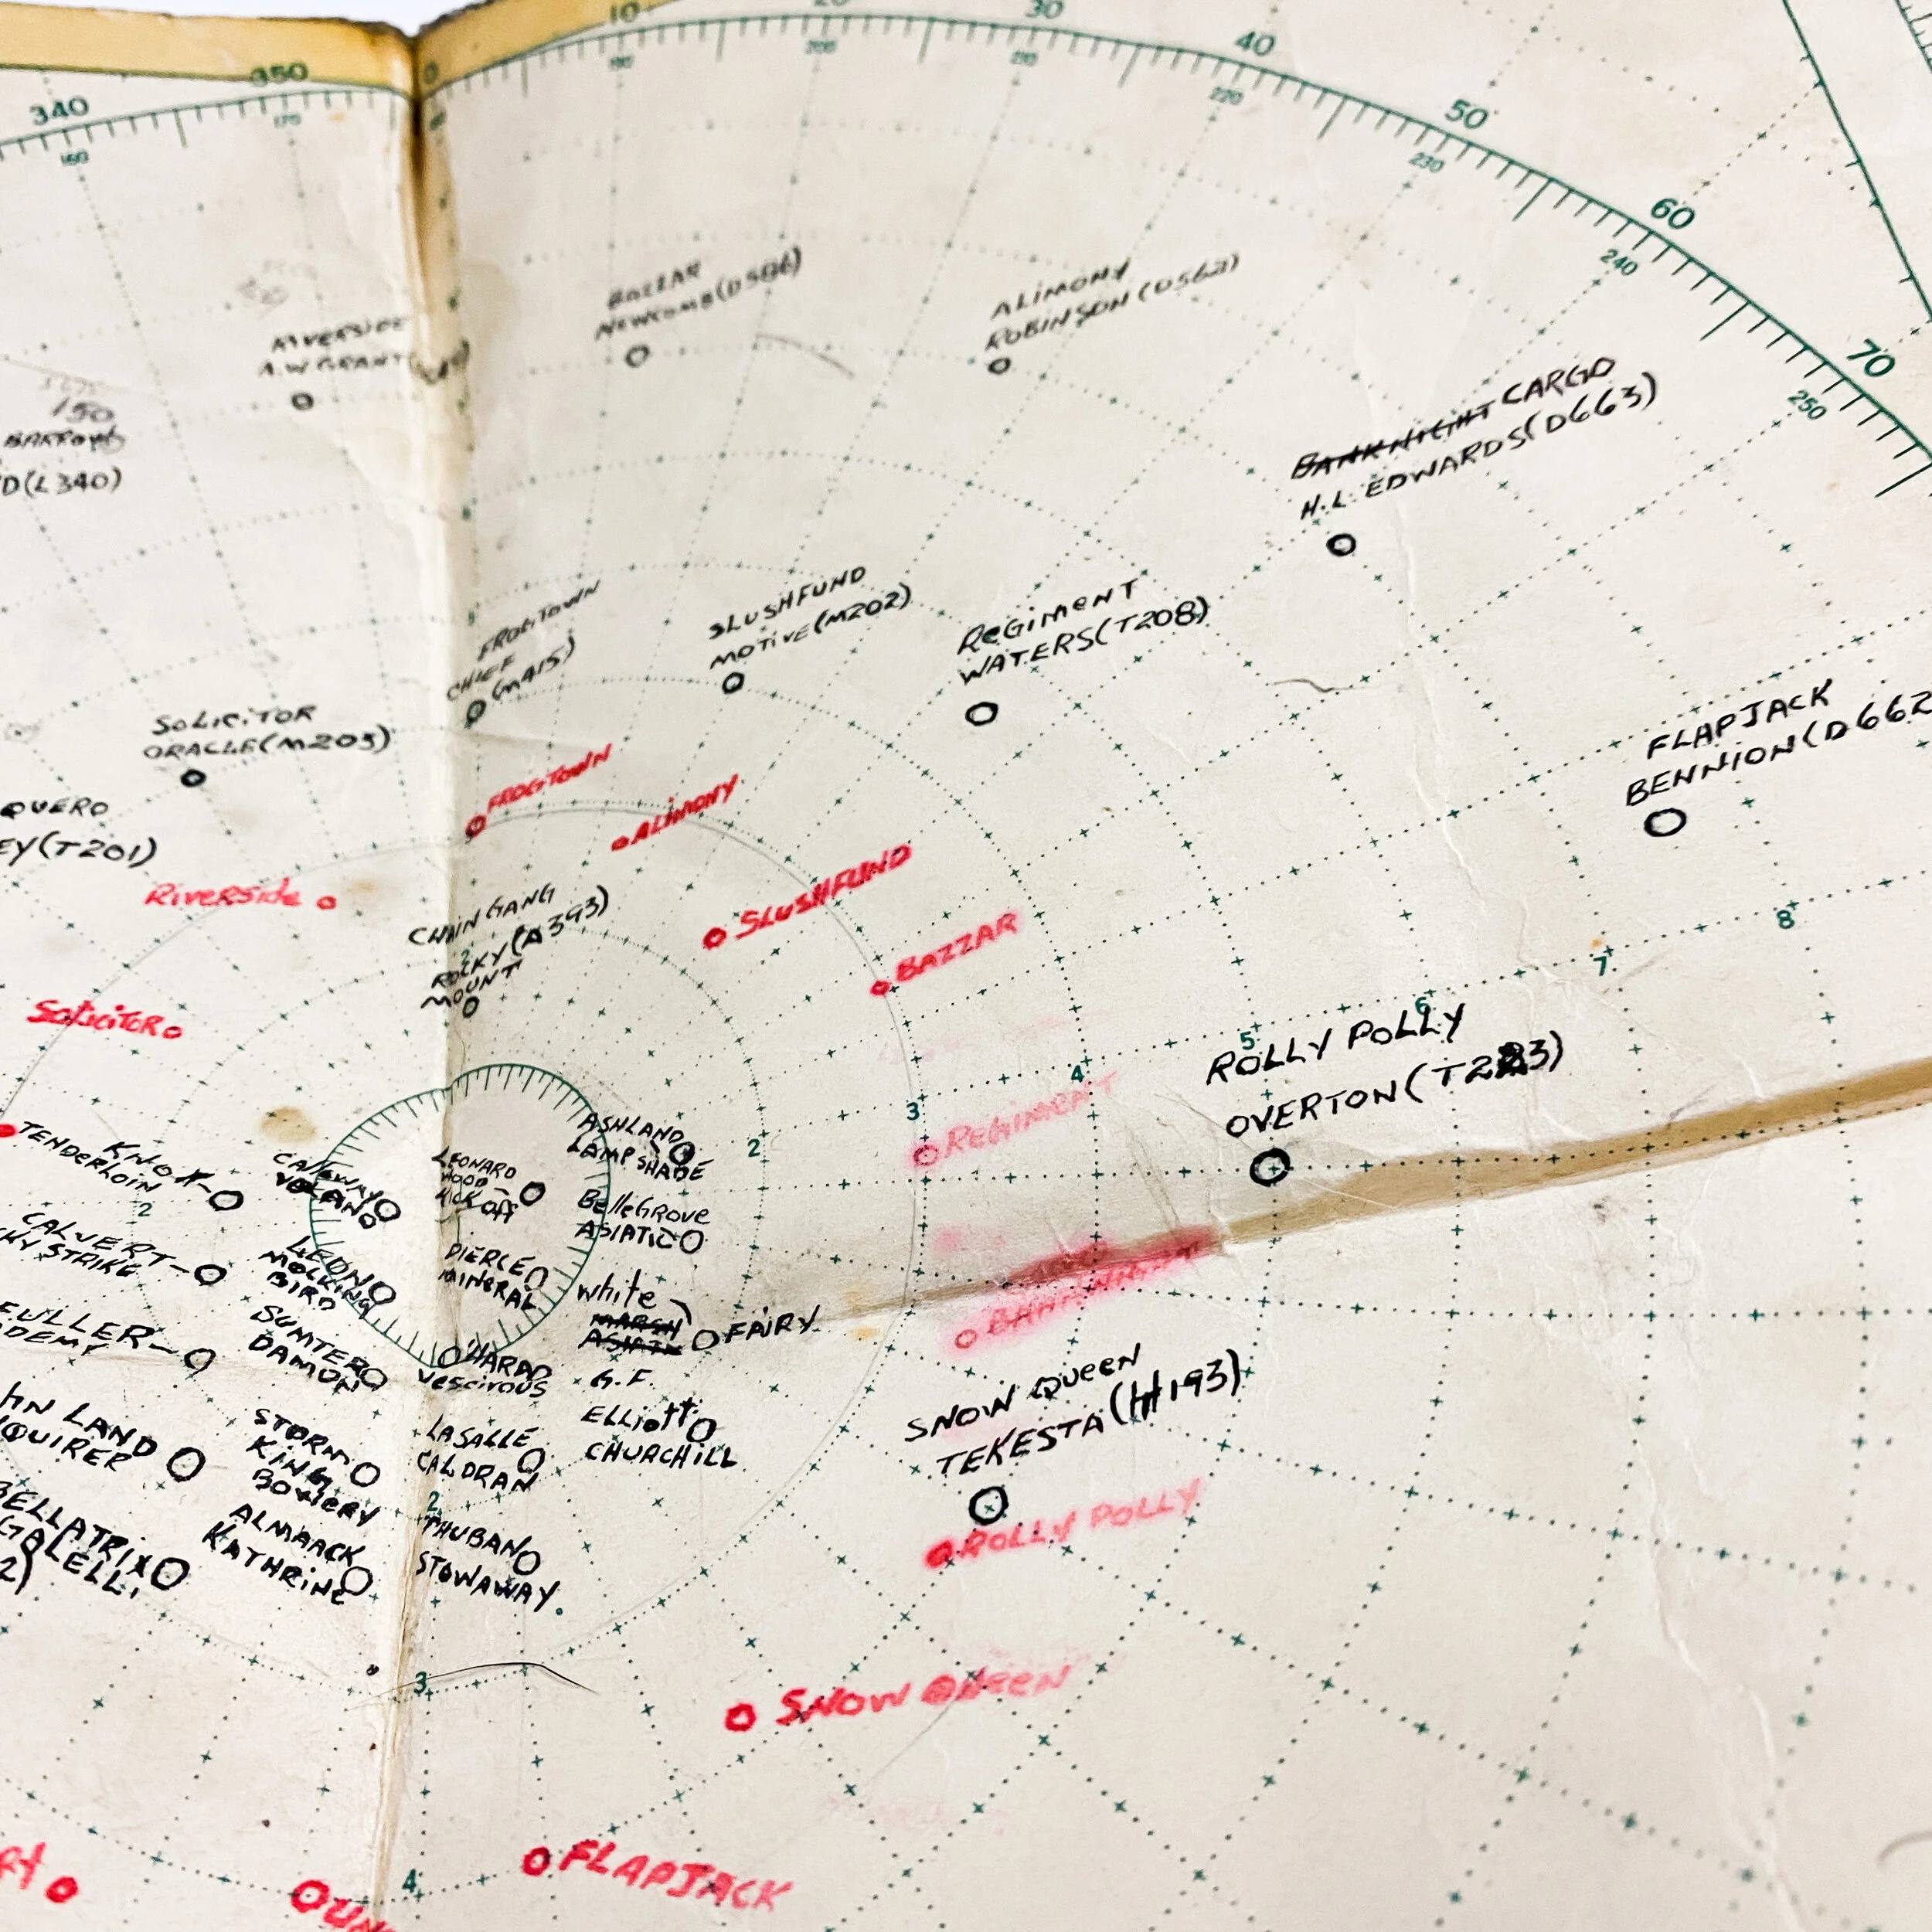 10
20
30
40
50
60
70
340
350
0
160
170
190
200
210
220
230
240
250
RIVERSIDE
A.W GRANT
150
BARROW
D(L340)
BAZZAR
NEWCOMB(D586)
ALIMONY
ROBINSON (D562)
BANKNIGHT CARGO
H.L. EDWARDS(D663)
FROGTOWN
CHIEF
(M415)
SLUSHFUND
MOTIVE(M202)
REGIMENT
WATERS(T208)
FLAPJACK
BENNION(D662
SOLICITOR
ORACLE(M203)
QUERO
EY(T201)
FROGTOWN
ALIMONY
SLUSHFUND
BAZZAR
Riverside
SoliciTOR
CHAIN GANG
ROCKY(A393)
MOUNT
2
3
4
5
6
7
8
ROLLY POLLY
OVERTON(T283)
REGIMENT
TENDERLOIN
KNOX
2
CALVERT
KY STRIKE
FULLER
DEMY
HN LAND
QUIRER
BELLATRIX
GALELLI
2)
CALLAWAY
VOLANO
LEON
MOCKING
BIRD
SUMTER
DAMON
STORM
KING
BOWERY
ALMAACK
KATHRINE
LEONARD
WOOD
KICK OFF
PIERCE
MINERAL
WARD
VESCIVOUS
LASALLE
CALDRAN
2
THUBAN
STOWAWAY
ASHLAND
LAMPSHADE
2
BelleGrove
ASIATIC
white
MARSH
ASIATIC
FAIRY
G.F.
ELLiott
CHURCHILL
BANKNIGHT
SNOW QUEEN
TEKESTA(H193)
ROLLY POLLY
3
SNOW QUEEN
4
FLAPJACK